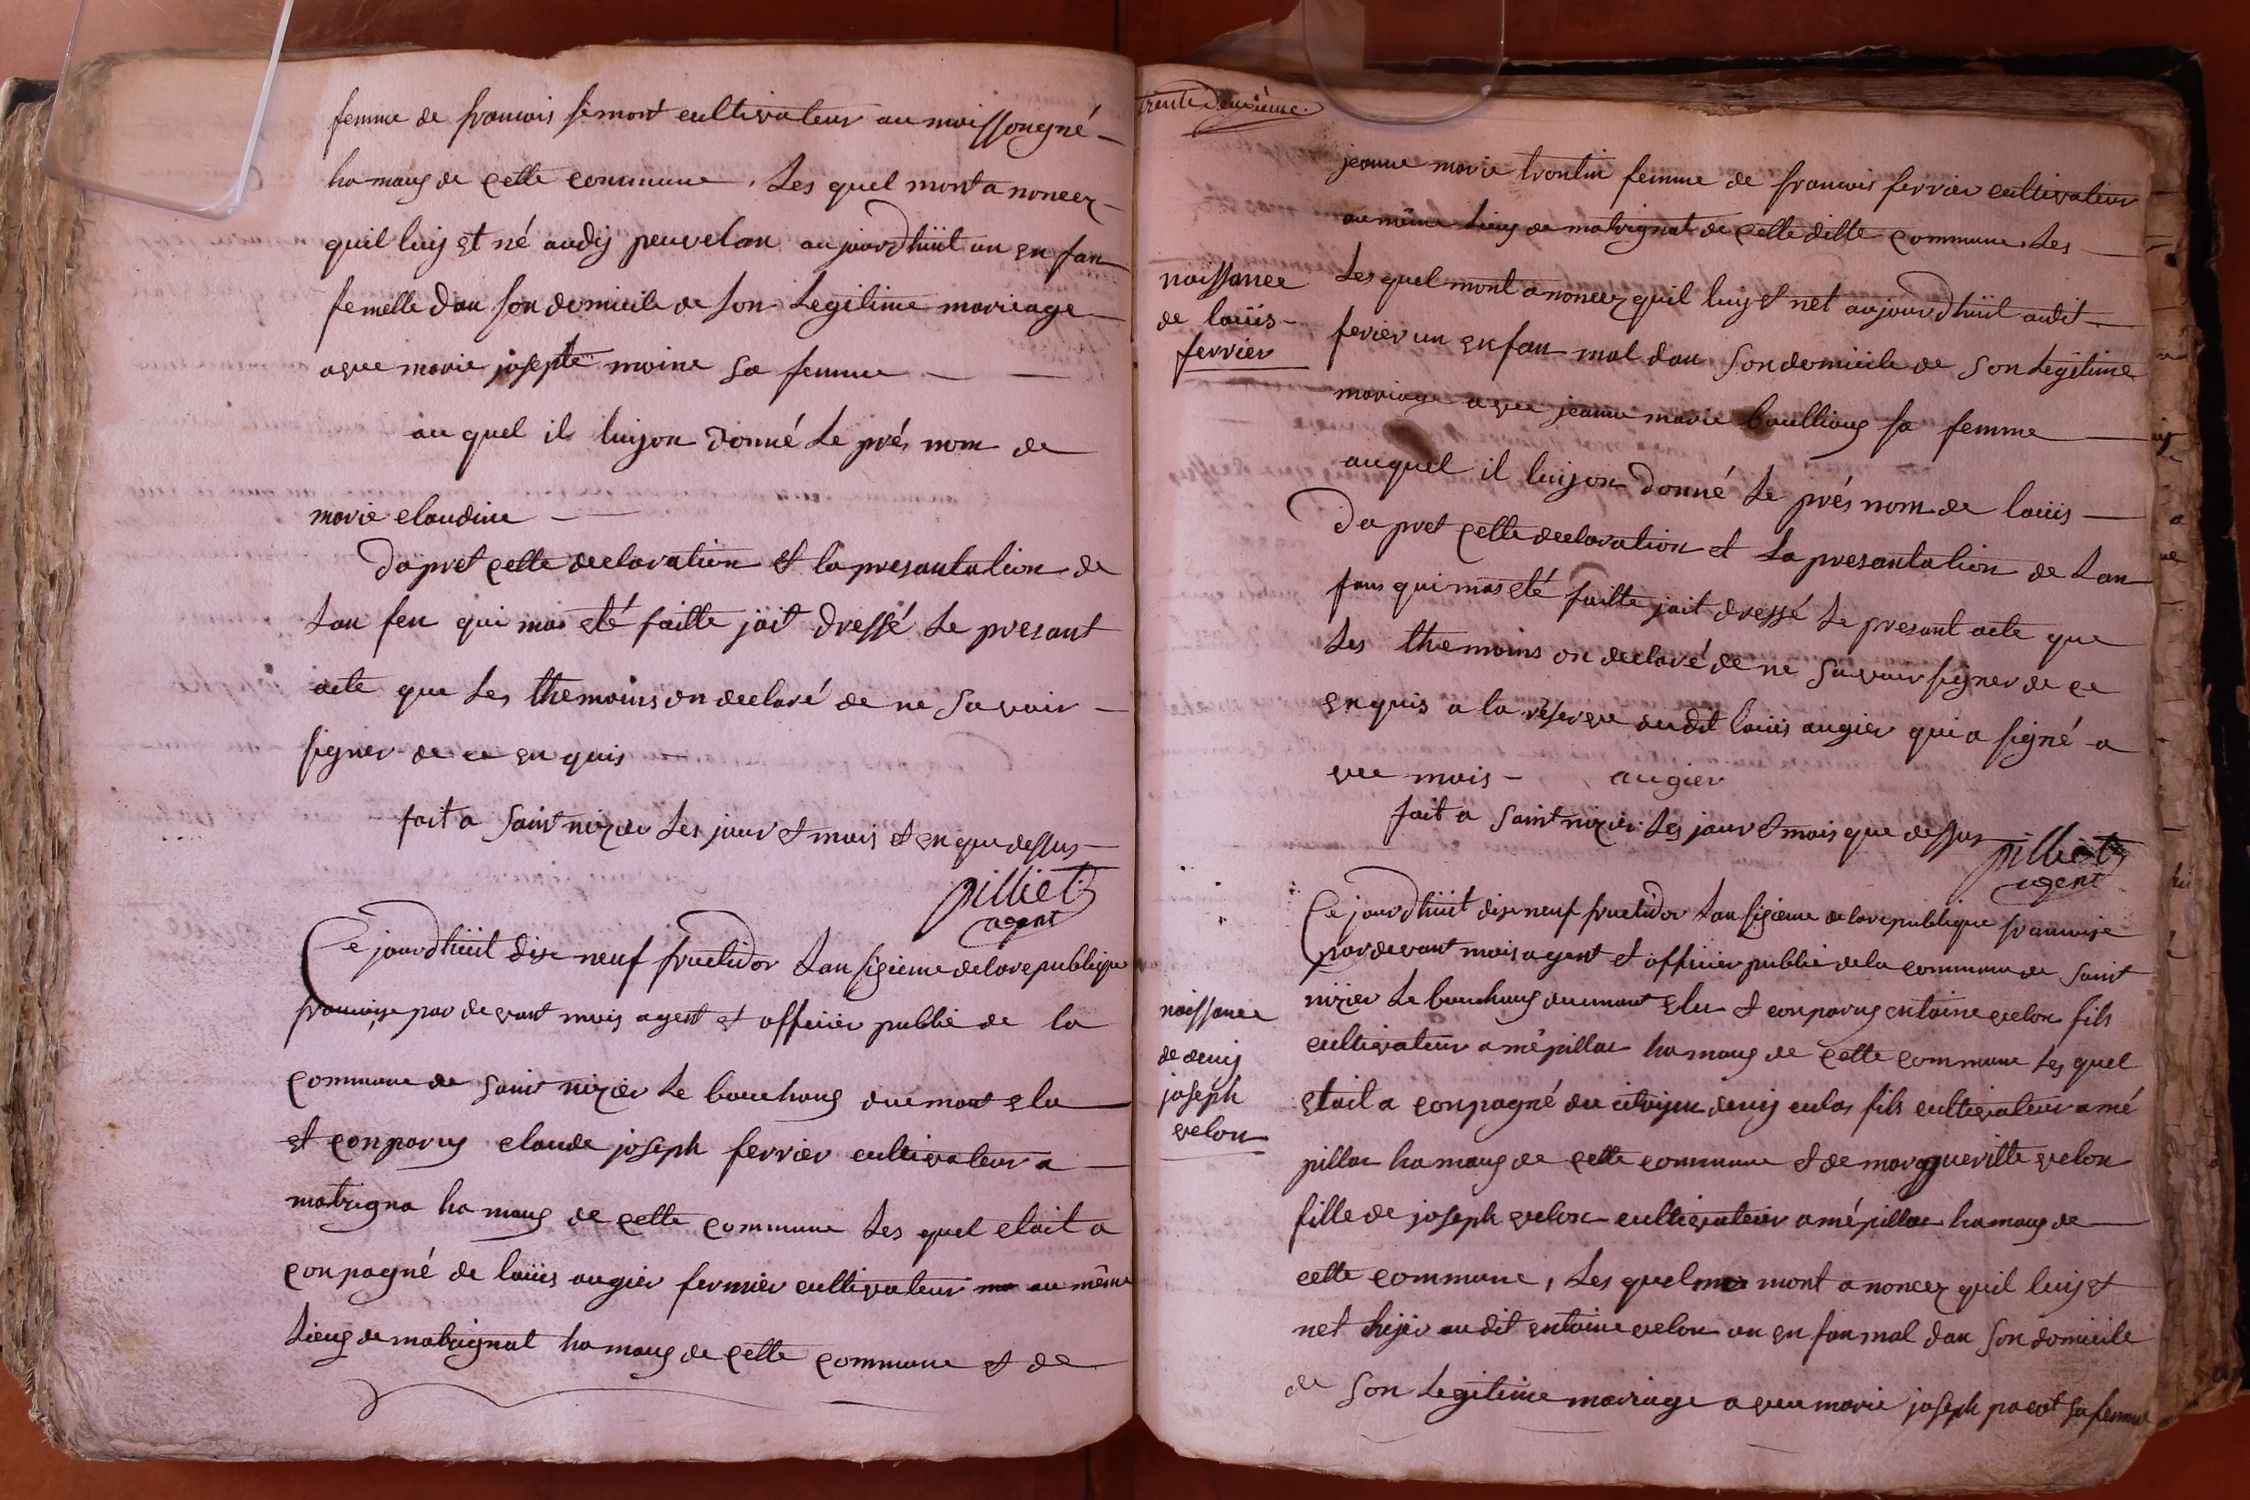 femme de francois simont cultivateur au moissongné
hamaug de cette commune, Les quel mont a noncez
quil luy est né audis peuvelan aujourdhüit un enfan
femelle dan son domicile de son Legitime mariage
avec marie josepte moine sa femme
au quel il luyon donné Le prés nom de
marie claudine
Dapret cette declaration et la presantation de
Lan fen qui mas eté faitte jait dressé Le presant
acte que Les themoins on declaré de ne savoir
signer de ce en quis
fait a saint nizier Les jour et mois et en que dessus
pilliet
agent
Ce jourdhüit dix neuf fructidor Lan sizieme de la republique
francaise par devant mois agent et officier public de la
commune de saint nizier Le bouchoug dument elu
et conparug claude joseph ferrier cultivateur a
matrigna hamaug de cette commune Les quel etait a
conpagné de loüis augier fermier cultivateur au même
Lieug de matrignat hamaug de cette commune et de
trente deuxième
jeanne marie trontin femme de francois ferrier cultivateur
au même Lieug de matrignat de cette ditte commune Les
naissance
de loüis
ferrier
Les quel mont a noncez quil luy et net aujourdhüit audit
ferier un enfan mal dan son domicile de son Legitime
mariage avec jeanne marie boulliong sa femme
auquel il luyon donné Le prés nom de loüis
Da pret cette declaration et La presantation de Lan
fans qui mas eté faitte jait dressé Le presant acte que
Les themoins on declaré de ne savoir signer de ce
enquis a la reserve dudit loüis augier qui a signé a
vec mois augier
fait a saint nizier Les jour et mois que dessus
pilliet
agent
Ce jourdhüit dix neuf fructidor Lan sizieme de la republique francaise
naissance
de denis
joseph
velon
par devant mois agent et officier public de la commune de saint
nizier Le bouchoug dument elu et conparug entoine velon fils
cultivateur a mépillat hamaug de cette commune Les quel
etait a conpagné du citoyen denis culas fils cultivateur a mé
pillat hamaug de cette commune et de margueritte velon
fille de joseph velon cultivateur a mépillat hamaug de
cette commune, Les quel mont a noncez quil luy et
net hijer audit entoine velon un enfan mal dan son domicile
de son Legitime mariage avec marie joseph pacot sa femme